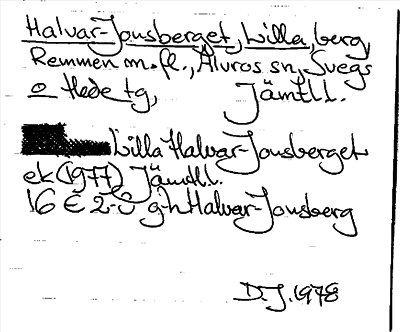 Halvar-Jonsberget, Lilla, berg,
Remmen m. fl., Älvros sn, Svegs
o Hede tg, Jämtl l.
Lilla Halvar-Jonsberget
ek (1977) Jämtl l.
16 E 2-0 g-h Halvar-Jonsberg
D.J. 1978